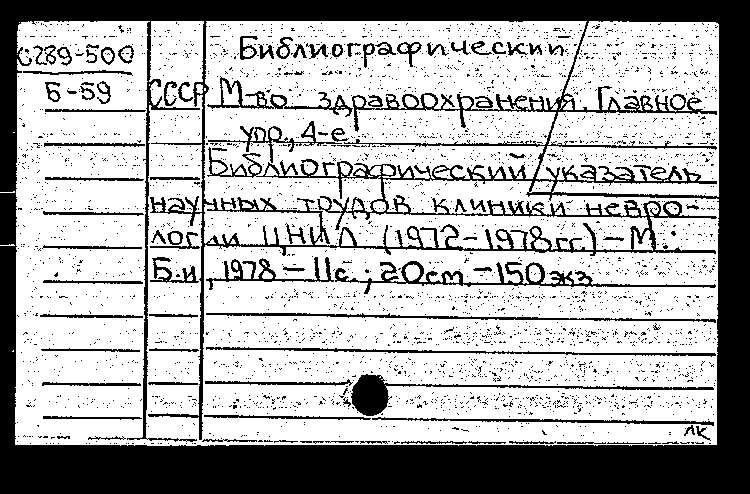 С289-500
Б-59
Библиографический
СССР М-во здравоохранения. Главное
упр., 4-е.
Библиографический указатель
научных трудов клиники невро-
логии ЦНИЛ (1972-1978гг.) - М.:
Б.и, 1978 - 11с.; 20см. - 150экз
лк